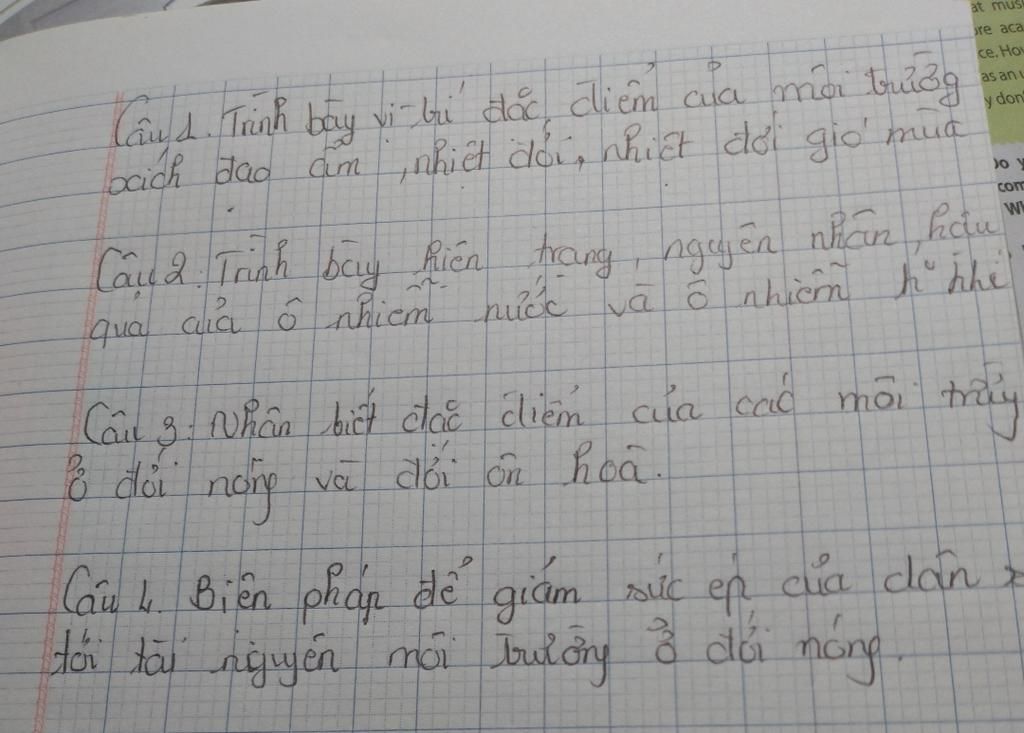 Câu 1. Trình bày vị trí đặc điểm của môi trường
xích đạo ẩm, nhiệt đới, nhiệt đới gió mùa
Câu 2. Trình bày hiện trạng, nguyên nhân, hậu
quả của ô nhiễm nước và ô nhiễm k² khí
Câu 3. Nhận biết đặc điểm của các môi trg
ở đới nóng và đới ôn hoà.
Câu 4. Biện pháp để giảm sức ép của dân
tới tài nguyên môi trường ở đới nóng.
at mus
ore aca
ce. Ho
as an
y don'
com